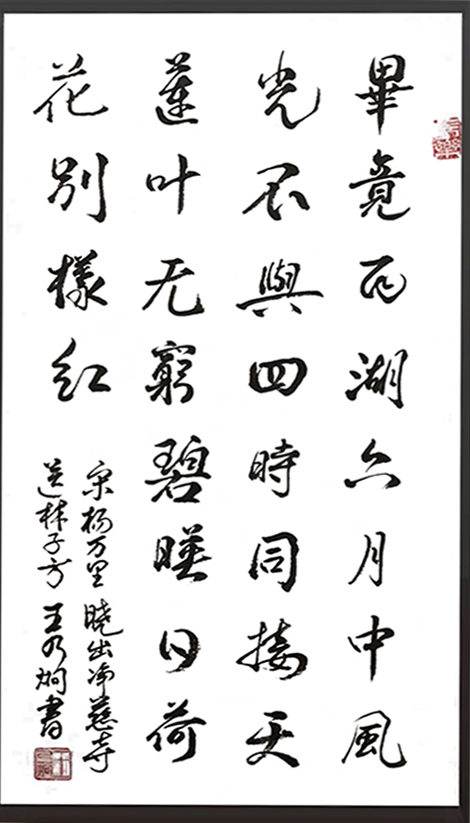 畢竟西湖六月中風
光不與四時同接天
蓮叶无窮碧暎日荷
花別樣红
宋杨万里曉出净慈寺
送林子方 王乃炯書